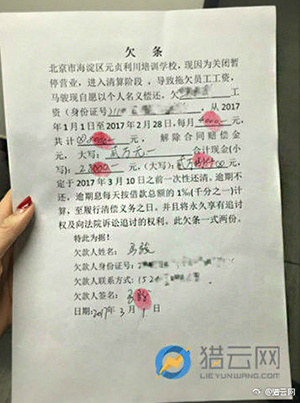 欠 条
北京市海淀区元贞利川培训学校，现因为关闭暂停
营业，进入清算阶段、导致拖欠员工工资，
马骏现自愿以个人名义偿还，工
资（身份证号）110，从 2017
年 1 月 1 日至 2017 年 2 月 28 日，每月 4000 元，
共计 8000 元， 解除合同赔偿金
元，大写：贰万元 合计现金(小
写)：28000 元，(大写)：贰万捌仟元，
定于 2017 年 3 月 10 日之前一次性还清。逾期不
还，逾期息每天按借款总额的 1‰(千分之一)计
算，至履行清偿义务之日。并且将永久享有追讨
权及向法院诉讼追讨的权利。此欠条一式两份。
特此为据！
欠款人姓名：马骏
欠款人身份证号：
欠款人联系方式：152
欠款人签名：马骏
日期：2017年 3 月 1 日
猎云网
LIEYUNWANG.COM
@猎云网